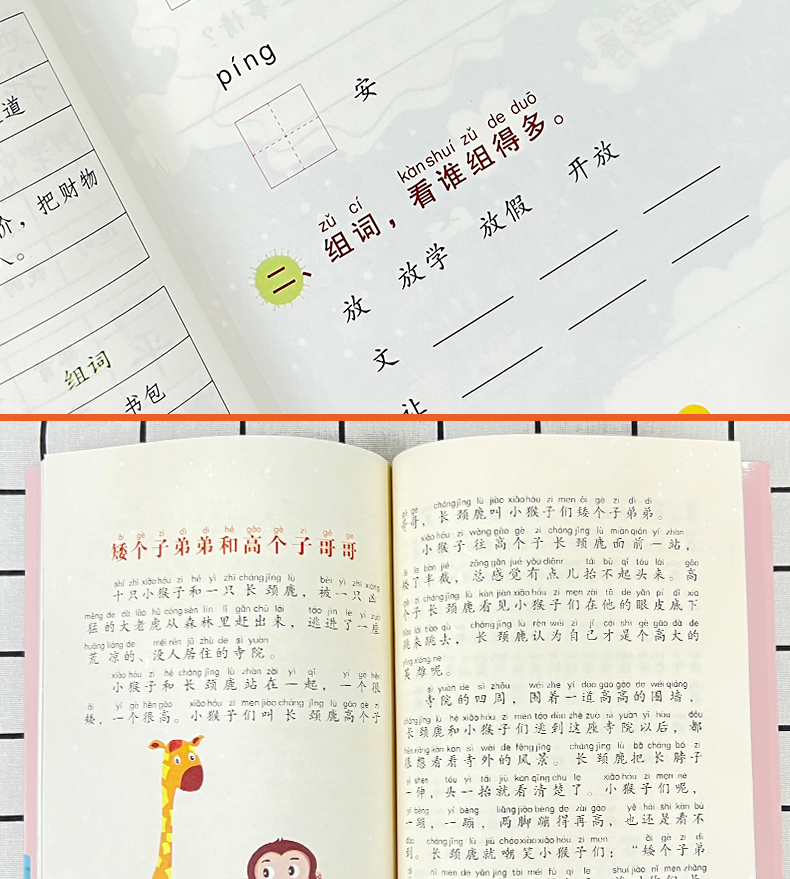 píng
安
道
价，把财物
zǔ cí kàn shuí zǔ de duō
二、组词，看谁组得多。
放 放学 放假 开放
文
让
组词
书包
ǎi gè zi dì di hé gāo gè zi gē ge
矮个子弟弟和高个子哥哥
shí zhī xiǎo hóu zi hé yì zhī cháng jǐng lù bèi yì zhī xiōng
十只小猴子和一只长颈鹿，被一只凶
měng de dà lǎo hǔ cóng sēn lín lǐ gǎn chū lái táo jìn le yí zuò
猛的大老虎从森林里赶出来，逃进了一座
huāng liáng de méi rén jū zhù de sì yuàn
荒凉的、没人居住的寺院。
xiǎo hóu zi hé cháng jǐng lù zhàn zài yì qǐ yí gè hěn
小猴子和长颈鹿站在一起，一个很
ǎi yí gè hěn gāo xiǎo hóu zi men jiào cháng jǐng lù gāo gè zi
矮，一个很高。小猴子们叫长颈鹿高个子
gē ge cháng jǐng lù jiào xiǎo hóu zi men ǎi gè zi dì di
哥哥，长颈鹿叫小猴子们矮个子弟弟。
xiǎo hóu zi wǎng gāo gè zi cháng jǐng lù miàn qián yí zhàn
小猴子往高个子长颈鹿面前一站，
ǎi le bàn jié zǒng gǎn jué yǒu diǎnr tái bù qǐ tóu lái gāo
矮了半截，总感觉有点儿抬不起头来。高
gè zi cháng jǐng lù kàn jiàn xiǎo hóu zi men zài tā de yǎn pí dǐ xià
个子长颈鹿看见小猴子们在他的眼皮底下
tiào lái tiào qù cháng jǐng lù rèn wéi zì jǐ cái shì gè gāo dà de
跳来跳去，长颈鹿认为自己才是个高大的
yīng xióng ne
英雄呢。
sì yuàn de sì zhōu wéi zhe yí dào gāo gāo de wéi qiáng
寺院的四周，围着一道高高的围墙，
cháng jǐng lù hé xiǎo hóu zi men táo dào zhè zuò sì yuàn yǐ hòu dōu
长颈鹿和小猴子们逃到这座寺院以后，都
hěn xiǎng kàn kan sì wài de fēng jǐng cháng jǐng lù bǎ cháng bó zi
很想看看寺外的风景。长颈鹿把长脖子
yì shēn tóu yì tái jiù kàn qīng chu le xiǎo hóu zi men ne
一伸，头一抬就看清楚了。小猴子们呢，
yí bèng yí bèng liǎng jiǎo bèng de zài gāo yě hái shi kàn bú
一蹦，一蹦，两脚蹦得再高，也还是看不
dào cháng jǐng lù jiù cháo xiào xiǎo hóu zi men ǎi gè zi dì
到。长颈鹿就嘲笑小猴子们：“矮个子弟